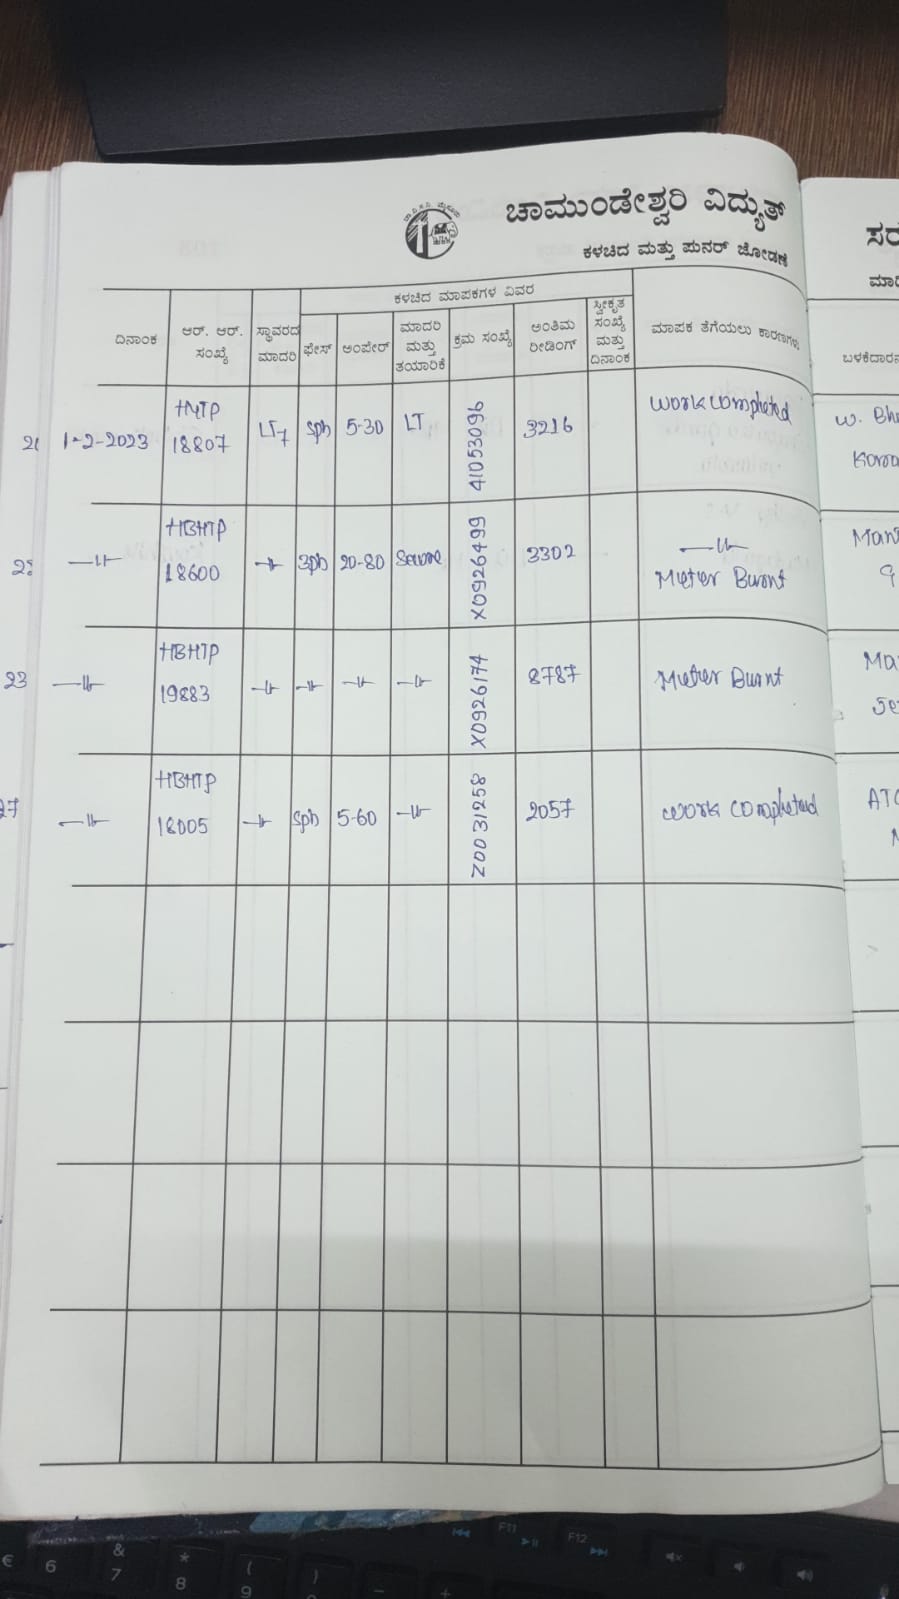 ಚಾಮುಂಡೇಶ್ವರಿ ವಿದ್ಯುತ್
ಕಳಚಿದ ಮತ್ತು ಪುನರ್ ಜೋಡಣೆ
ಕಳಚಿದ ಮಾಪಕಗಳ ವಿವರ
ದಿನಾಂಕ ಆರ್. ಆರ್. ಸಂಖ್ಯೆ ಸ್ಥಾವರದ ಮಾದರಿ ಫೇಸ್ ಅಂಪೇರ್ ಮಾದರಿ ಮತ್ತು ತಯಾರಿಕೆ ಕ್ರಮ ಸಂಖ್ಯೆ ಅಂತಿಮ ರೀಡಿಂಗ್ ಸ್ವೀಕೃತ ಸಂಖ್ಯೆ ಮತ್ತು ದಿನಾಂಕ ಮಾಪಕ ತೆಗೆಯಲು ಕಾರಣಗಳು
1-2-2023 18807 LT7 Sph 5-30 LT 41053096 3216 work completed
HBHTP 18600 3ph 20-80 Secure X0926499 3302 Meter Burnt
23 HBHTP 19883 X0926174 8787 Meter Burnt
HBHTP 18005 Sph 5-60 Z0031258 2057 work completed
F11
F12
&
7
6
*
8
(
9